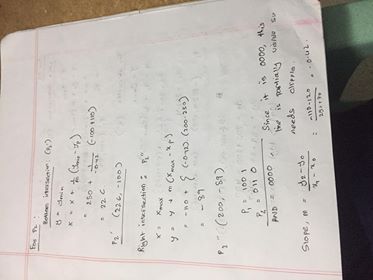 For P2
Bottom intersection (P2')
y = ymin
x = x + 1/m (ymin - yp)
= 250 + 1/-0.42 (-100+110)
= 226
P2' (226, -100)
Right intersection: P2''
x = xmax
y = y + m(xmax - xp)
= -110 + { (-0.42) (200-250)
= -89
P2'' (200, -89)
P1 = 1001
P2 = 0110
AND = 0000 Since it is 0000, this
line is partially visible so
needs
Slope, m = y2-y0 / x1-x0 = -110-120 / = -0.42